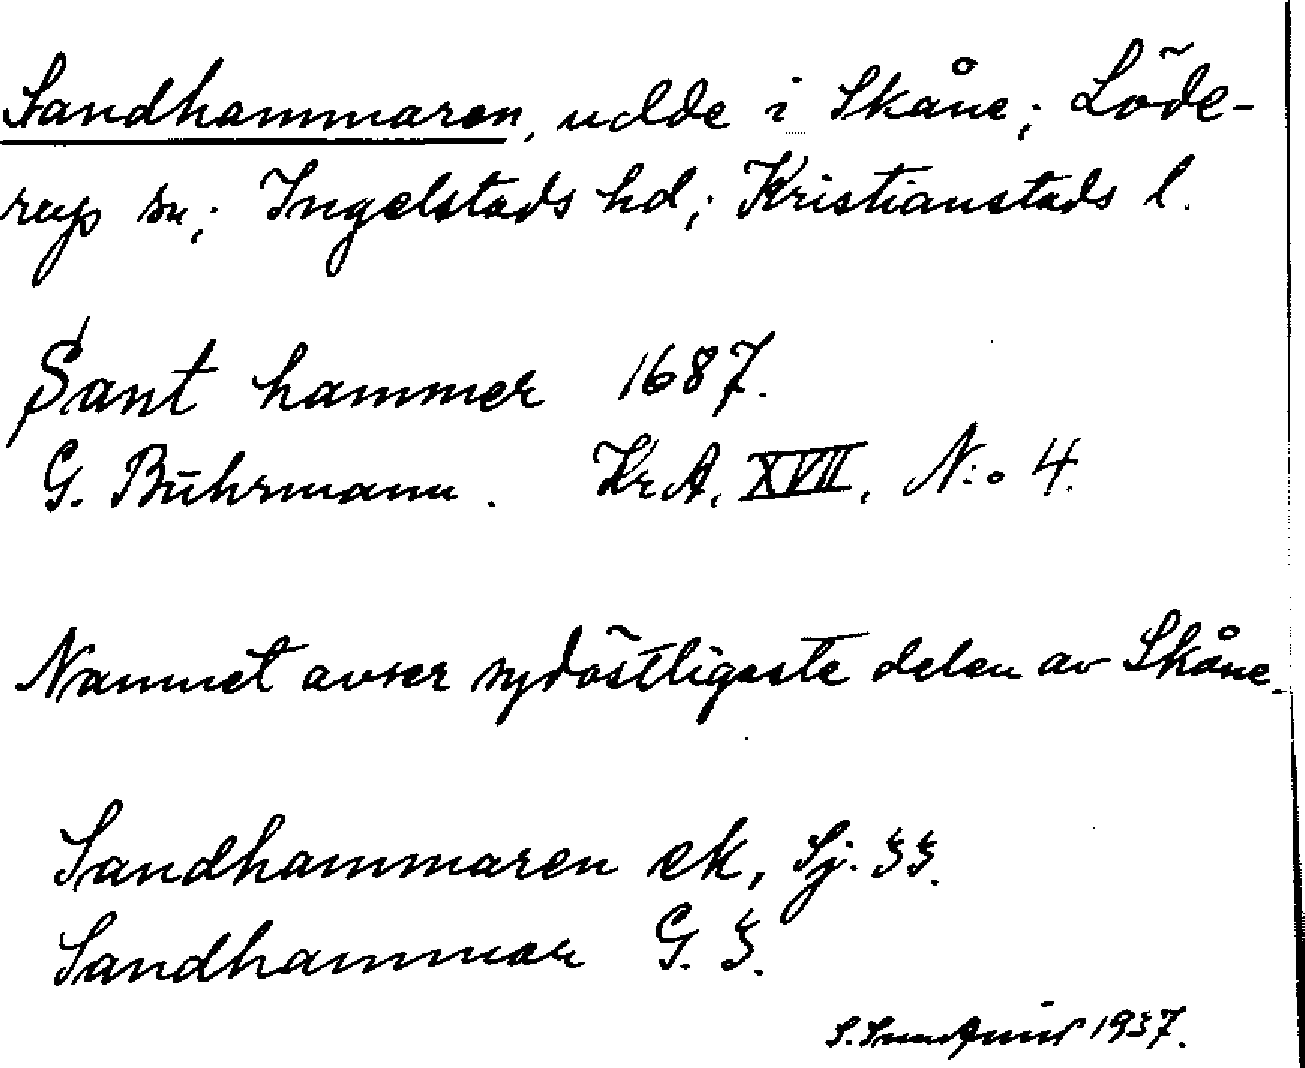 Sandhammaren, udde i Skåne; Löde-
rups sn; Ingelstads hd; Kristianstads l.
Sant hammer 1687.
G. Buhrmann. Kr.A. XVII, N:o 4.
Namnet avser sydöstligaste delen av Skåne.
Sandhammaren ek, Sj. 33.
Sandhammar G. 3.
S. 1937.